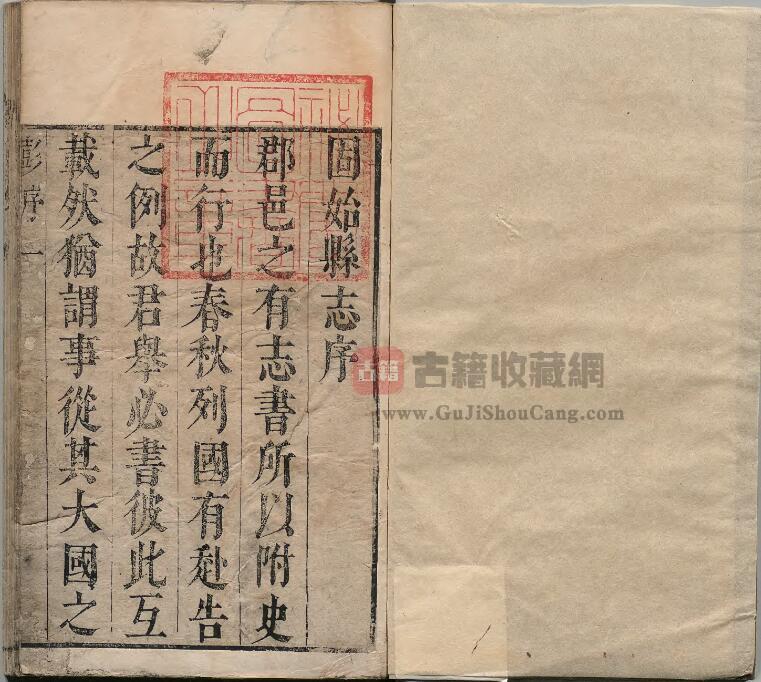 固始縣志序
郡邑之有志書所以附史
而行也春秋列國有赴告
之例故君舉必書彼此互
載然猶謂事從其大國之
彭序 一
古籍 古籍收藏網
www.GuJiShouCang.com